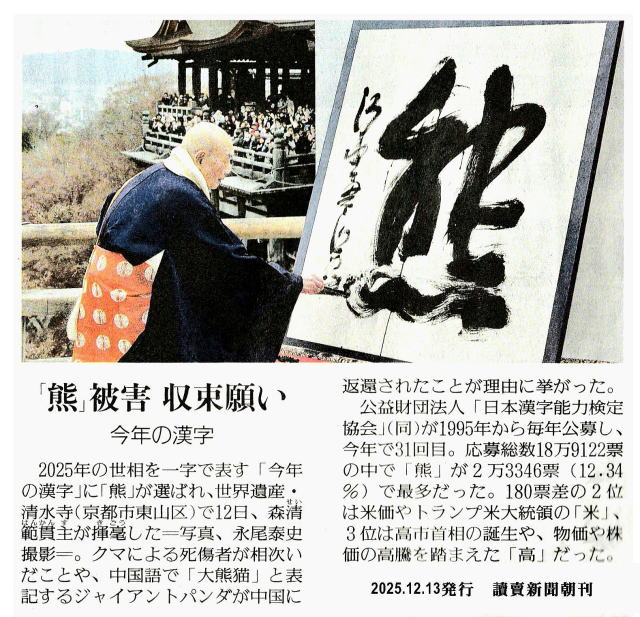 熊
「熊」被害 収束願い
今年の漢字
2025年の世相を一字で表す「今年
の漢字」に「熊」が選ばれ、世界遺産・
清水寺(京都市東山区)で12日、森清
範貫主が揮毫した=写真、永尾泰史
撮影=。クマによる死傷者が相次い
だことや、中国語で「大熊猫」と表
記するジャイアントパンダが中国に
返還されたことが理由に挙がった。
公益財団法人「日本漢字能力検定
協会」(同)が1995年から毎年公募し、
今年で31回目。応募総数18万9122票
の中で「熊」が2万3346票(12.34
%)で最多だった。180票差の2位
は米価やトランプ米大統領の「米」、
3位は高市首相の誕生や、物価や株
価の高騰を踏まえた「高」だった。
2025.12.13発行 讀賣新聞朝刊